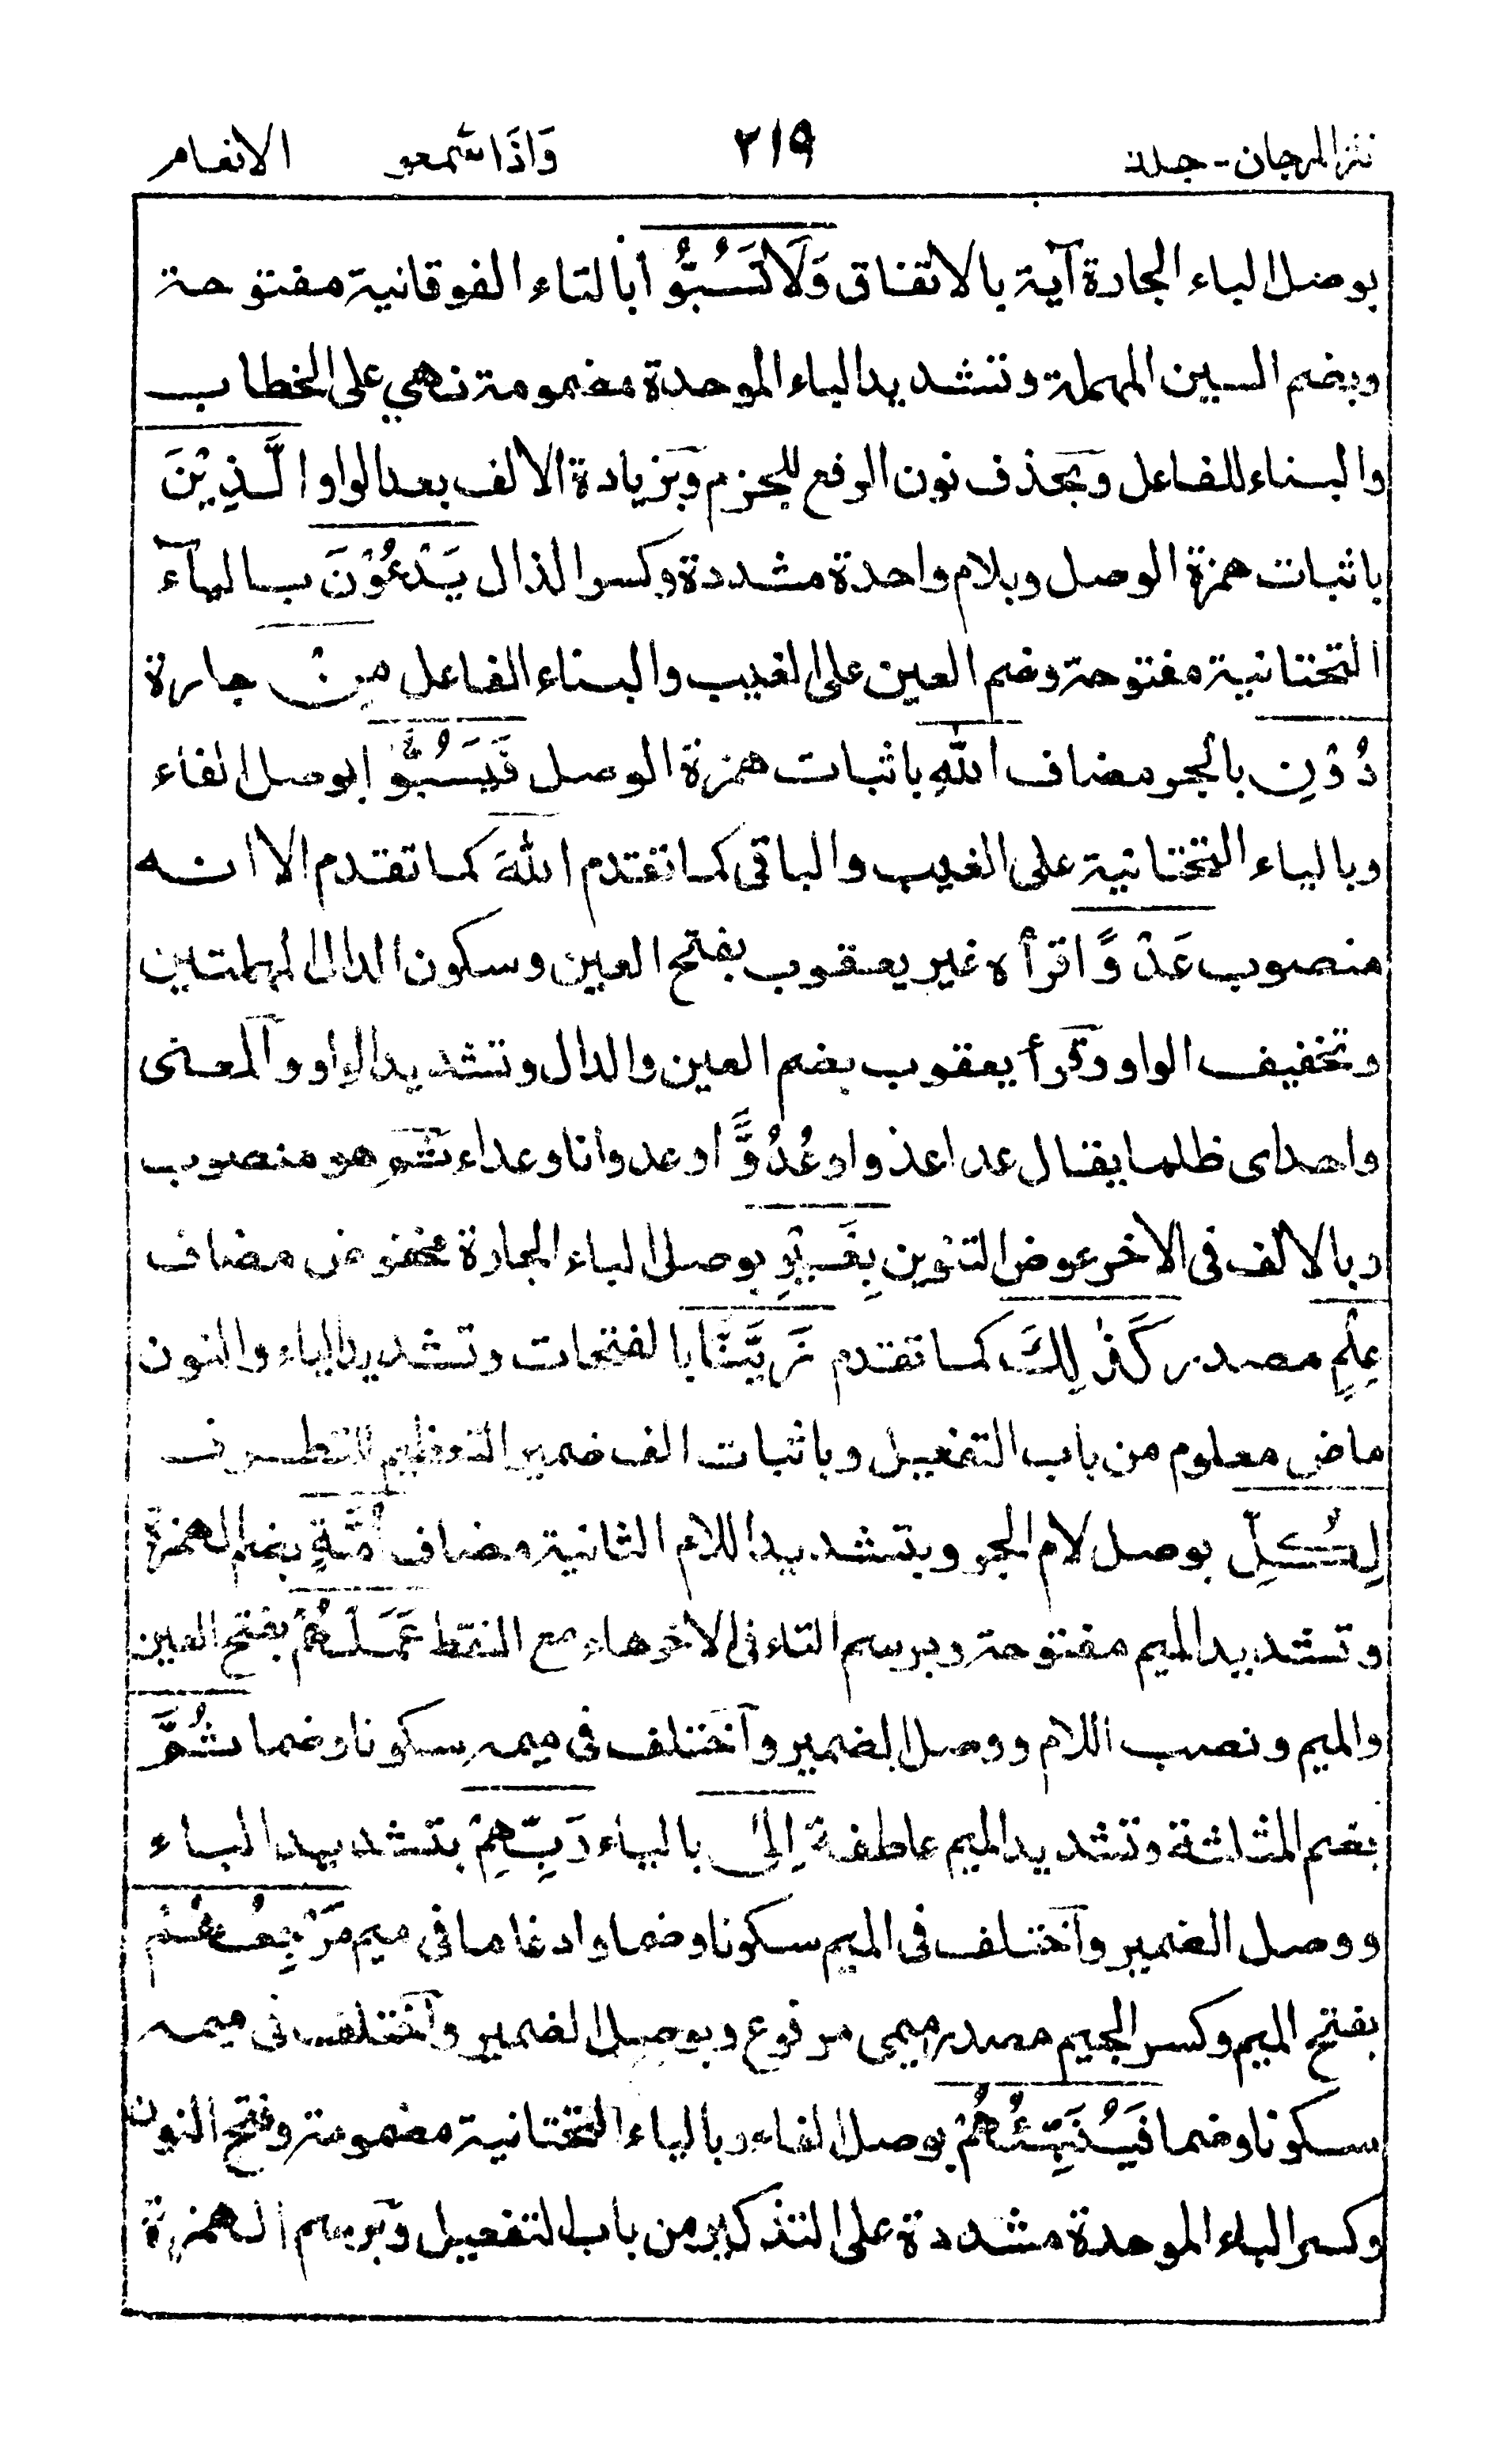 نثر المرجان - جلد٢ ٢١٩ وَاذَا سَّمعو الانعام
بوصل الباء الجارة آية بالاتفاق وَلَا تَسُبُّوا بالتاء الفوقانية مفتوحة
وبضم السين المهملة وتشديد الباء الموحدة مضمومة نهي على الخطاب
والبناء للفاعل وبحذف نون الرفع للجزم وبزيادة الالف بعد الواو الَّذِيْنَ
باثبات همزة الوصل وبلام واحدة مشددة وكسر الذال يَدْعُوْنَ بالياء
التحتانية مفتوحة وضم العين على الغيب والبناء الفاعل مِنْ جارة
دُوْنِ بالجر مضاف اللّٰهِ باثبات همزة الوصل فَيَسُبُّوا بوصل الفاء
وبالياء التحتانية على الغيب والباقي كما تقدم اللّٰهَ كما تقدم الا انه
منصوب عَدْوًا قرأه غير يعقوب بفتح العين وسكون الدال المهملتين
وتخفيف الواو وقرأ يعقوب بضم العين والدال وتشديد الواو والمعنى
واحد اى ظلما يقال عدا عدوا وعُدُوًّا وعدوانا وعداء ثم هو منصوب
وبالالف فى الاخر عوض التنوين بِغَيْرِ بوصل الباء الجارة مخفوض مضاف
عِلْمٍ مصدر كَذٰلِكَ كما تقدم زَيَّنَّا بالفتحات وتشديد الياء والنون
ماض معلوم من باب التفعيل وباثبات الف ضمير التعظيم للتطرف
لِكُلِّ بوصل لام الجر وبتشديد اللام الثانية مضاف اُمَّةٍ بضم الهمزة
وتشديد الميم مفتوحة وبرسم التاء فى الاخر هاء مع النقط عَمَلَهُمْ بفتح العين
والميم ونصب اللام ووصل الضمير واختلف فى ميمه سكونا وضما ثُمَّ
بضم المثلثة وتشديد الميم عاطفة اِلىٰ بالياء رَبِّهِمْ بتشديد الباء
ووصل الضمير واختلف فى الميم سكونا وضما وادغاما فى ميم مَرْجِعُهُمْ
بفتح الميم وكسر الجيم مصدر ميمى مرفوع وبوصل الضمير واختلف فى ميمه
سكونا وضما فَيُنَبِّئُهُمْ بوصل الفاء وبالياء التحتانية مضمومة وفتح النون
وكسر الباء الموحدة مشددة على التذكير من باب التفعيل وبرسم الهمزة